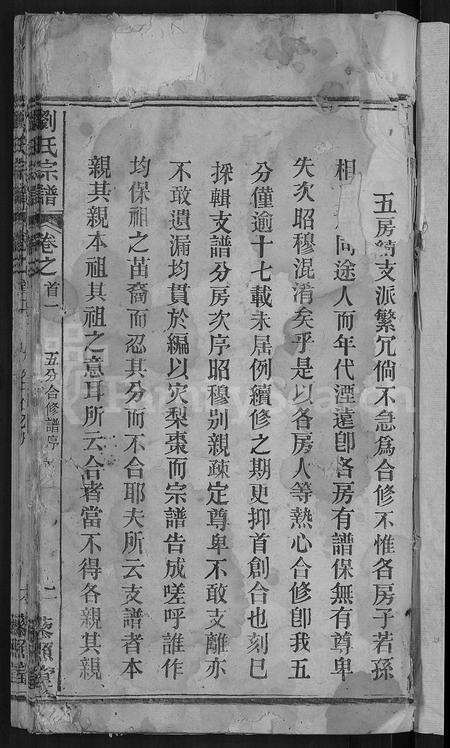 五房
支派繁冗倘不急為合修不惟各房子若孫
相
同途人而年代湮遠卽各房有譜保無有尊卑
失次昭穆混淆矣乎是以各房人等熱心合修卽我五
分僅逾十七載未居例續修之期更抑首創合也刻巳
採輯支譜分房次序昭穆别親疎定尊卑不敢支離亦
不敢遺漏均貫於編以灾梨棗而宗譜告成嗟呼誰作
均保祖之苗裔而忍其分而不合耶夫所云支譜者本
親其親本祖其祖之意耳所云合者當不得各親其親
劉氏宗譜
卷之首一
五分合修譜序
二
藜照堂